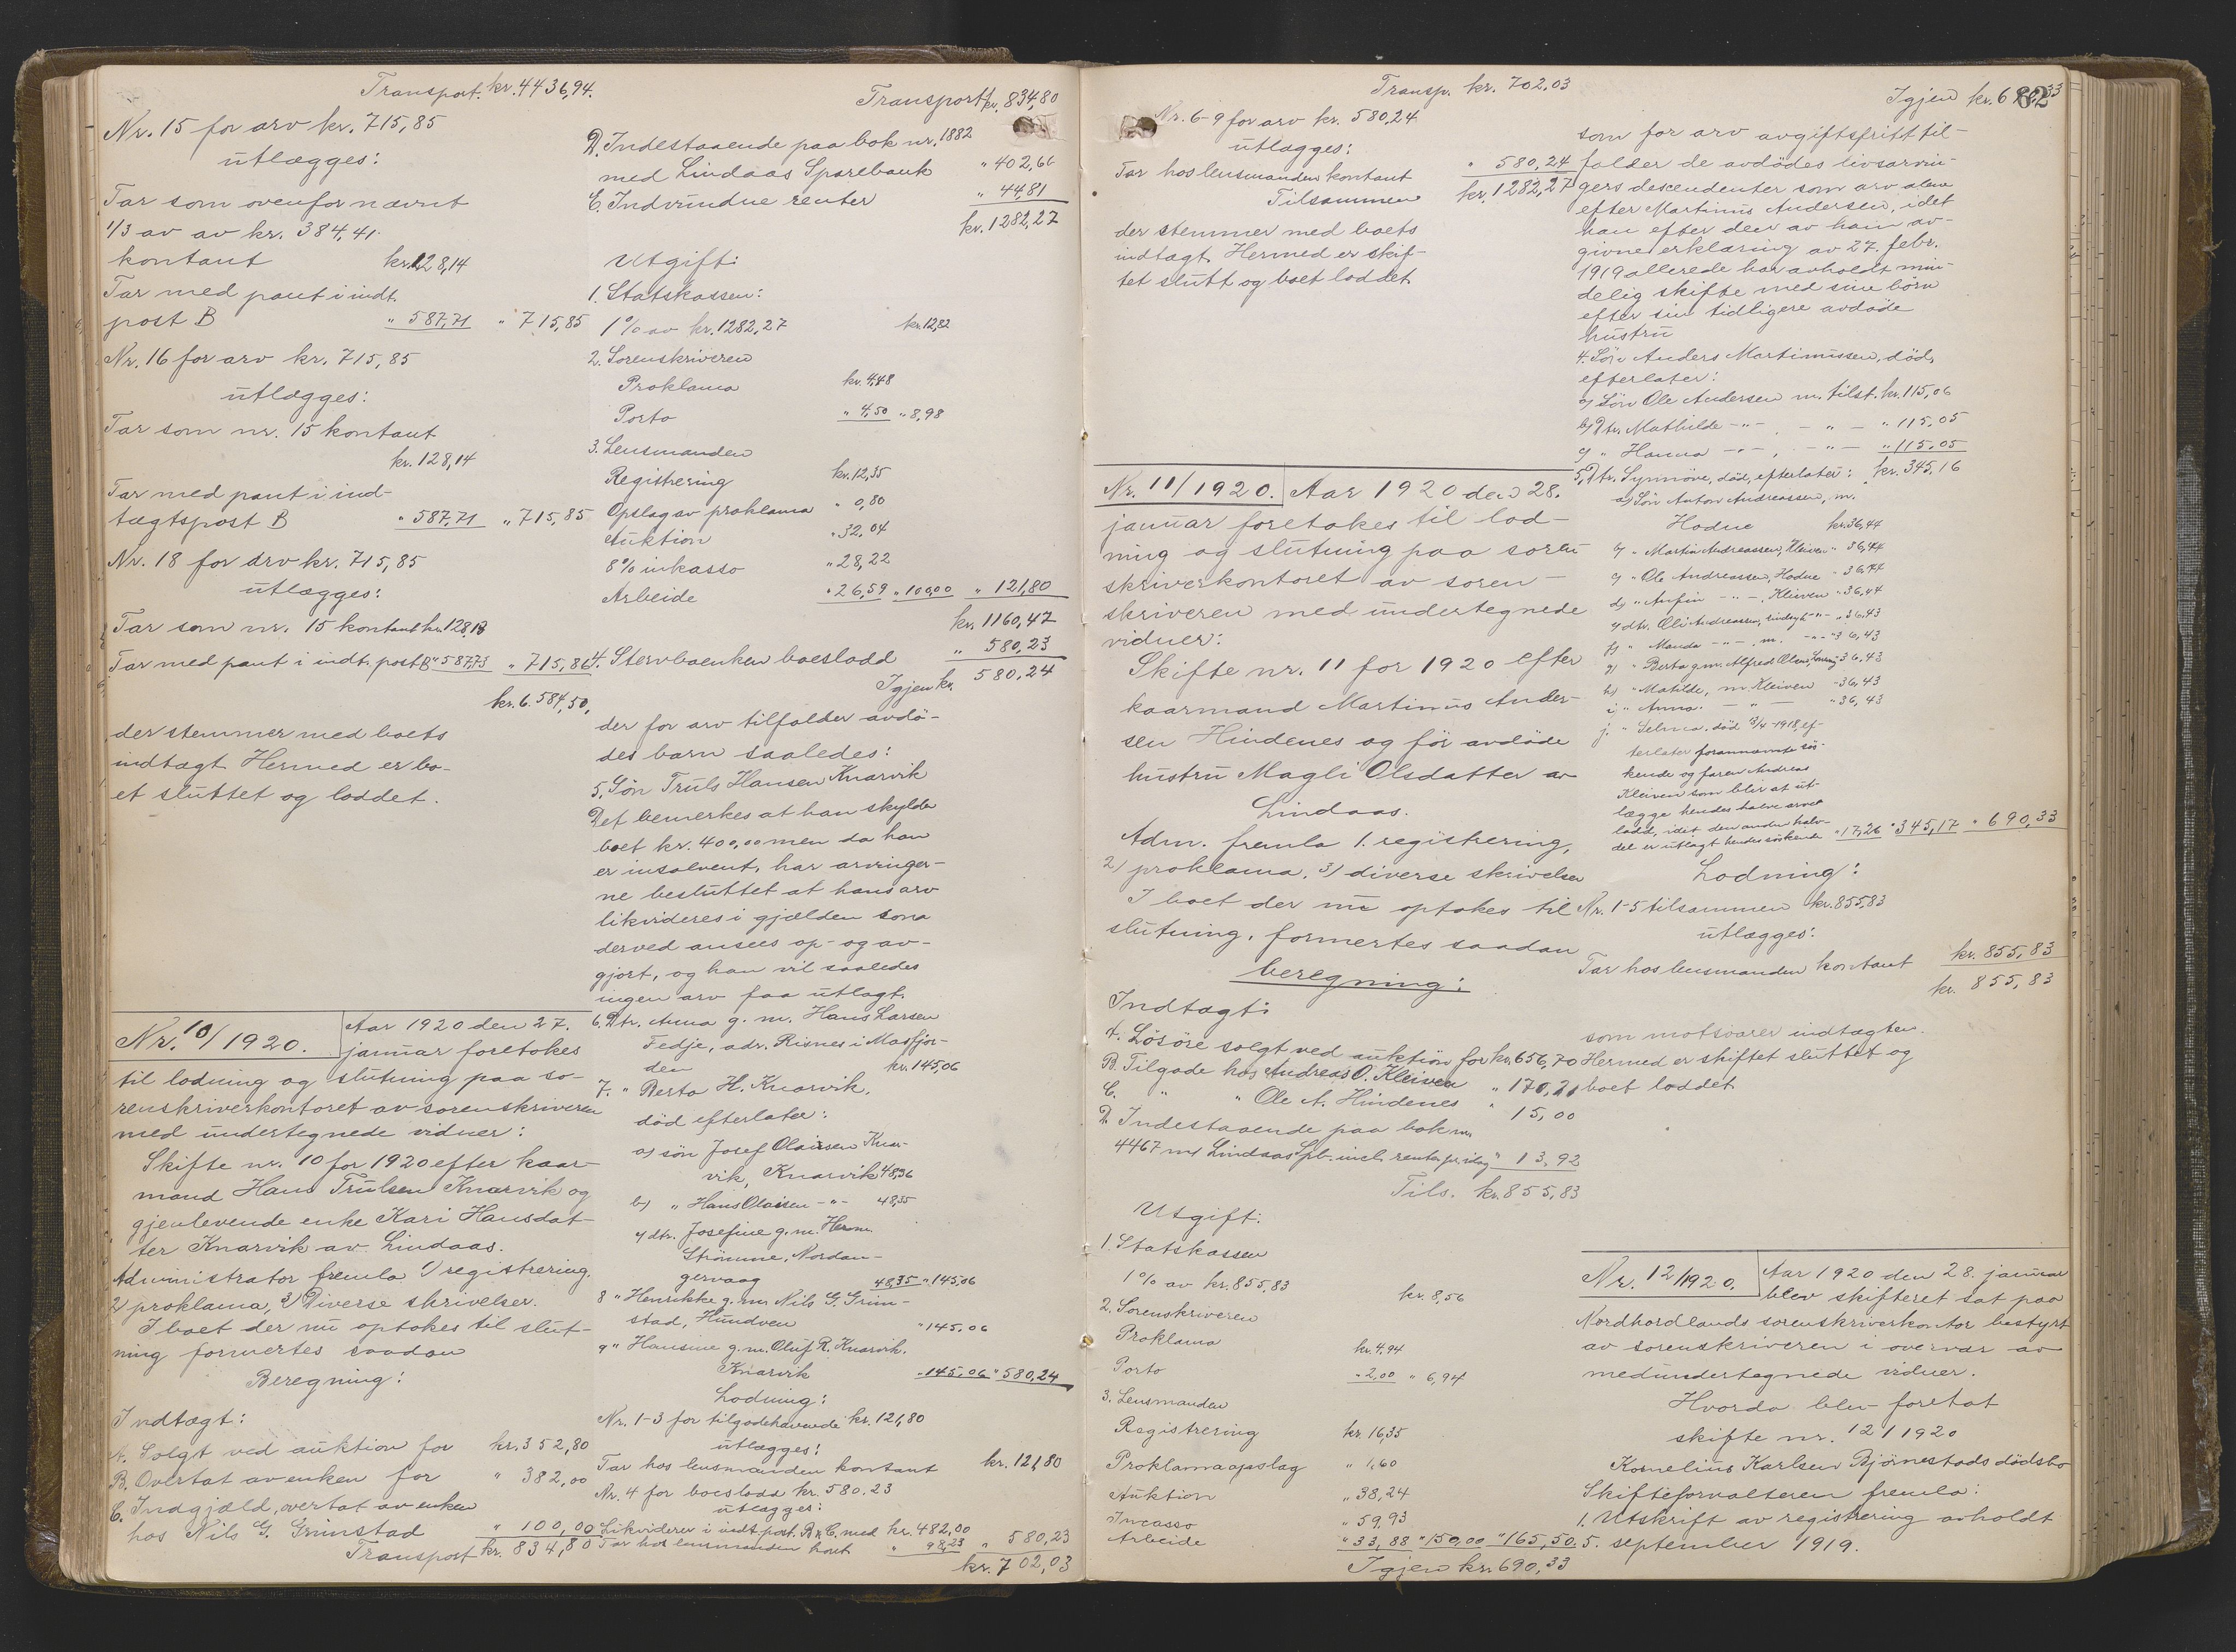 Transport. kr. 4436,94.
Nr. 15 for arv kr. 715,85
utlægges:
Tar som ovenfor nævnt
1/3 av av kr. 384,41.
kontant kr. 128,14
Tar med pant i indt.
post B " 587,71 " 715,85
Nr. 16 for arv kr. 715,85
utlægges:
Tar som nr. 15 kontant
kr. 128,14
Tar med pant i ind-
tægtspost B " 587,71 " 715,85
Nr. 18 for arv kr. 715,85
utlægges:
Tar som nr. 15 kontant kr. 128,13
Tar med pant i indt. post B " 587,73 " 715,86
kr. 6.584,50,
der stemmer med boets
indtægt. Hermed er bo-
et sluttet og loddet.
Nr. 10/1920. Aar 1920 den 27.
januar foretokes
til lodning og slutning paa so-
renskriverkontoret av sorenskriveren
med undertegnede vidner:
Skifte nr. 10 for 1920 efter kaar-
mand Hans Trulsen Knarvik og
gjenlevende enke Kari Hansdat-
ter Knarvik av Lindaas.
Administrator fremla 1) registrering.
2) proklama, 3) Diverse skrivelser.
I boet der nu optokes til slut-
ning formertes saadan
Beregning:
Indtægt:
A. Solgt ved auktion for kr. 352,80
B. Overtat av enken for " 382,00
C. Indgjæld, overtat av enken
hos Nils G. Grimstad " 100,00
Transport kr. 834,80
Transport kr. 834,80
D. Indestaaende paa bok nr. 1882
med Lindaas Sparebank " 402,66
E. Indvundne renter " 44,81
kr. 1282,27
Utgift:
1. Statskassen:
1% av kr. 1282,27 kr. 12,82
2. Sorenskriveren
Proklama kr. 4,48
Porto " 4,50 " 8,98
3. Lensmanden
Registrering kr. 12,35
Opslag av proklama " 0,80
Auktion " 32,04
8% inkasso " 28,22
Arbeide " 26,59 " 100,00 " 121,80
kr. 1160,47
4. Stervboenken boeslodd " 580,23
Igjen kr. 580,24
der for arv tilfalder avdö-
des barn saaledes:
5. Sön Truls Hansen Knarvik
Det bemerkes at han skylder
boet kr. 400,00 men da han
er insolvent, har arvinger-
ne besluttet at hans arv
likvideres i gjælden som
derved ansees op- og av-
gjort, og han vil saaledes
ingen arv faa utlagt.
6. Dtr. Anna g. m. Hans Larsen
Fedje, adr. Risnes i Masfjor-
den kr. 145,06
7. " Berta H. Knarvik,
död efterlater:
a) sön Josef Olaisen Knar-
vik, Knarvik 48,36
b) " Hans Olaisen -"- 48,35
c) dtr. Josefine g. m. Herm.
Strömme, Nordan-
gervaag 48,35 " 145,06
8 " Henrikke g. m. Nils G. Grim-
stad, Hundven " 145,06
9 " Hansine g. m. Oluf R. Knarvik.
Knarvik " 145,06 " 580,24
Lodning:
Nr. 1-3 for tilgodehavende kr. 121,80
utlægges:
Tar hos lensmanden kontant kr. 121,80
Nr. 4 for boeslodd kr. 580,23
utlægges:
Likviderer i indt. post. B & C. med kr. 482,00
Tar hos lensmanden kont " 98,23 " 580,23
kr. 702,03
Transp. kr. 702,03
Nr. 6-9 for arv kr. 580,24
utlægges:
Tar hos lensmanden kontant " 580,24
Tilsammen kr. 1282,27
der stemmer med boets
indtægt. Hermed er skif-
tet slutt og boet loddet.
Nr. 11/1920. Aar 1920 den 28.
januar foretokes til lod-
ning og slutning paa soren
skriverkontoret av soren-
skriveren med undertegnede
vidner:
Skifte nr. 11 for 1920 efter
kaarmand Martinus Ander-
sen Hindenes og för avdöde
hustru Magli Olsdatter av
Lindaas.
Adm. fremla 1. registrering,
2) proklama. 3) diverse skrivelser
I boet der nu optokes til
slutning, formertes saadan
beregning:
Indtægt:
A. Lösöre solgt ved auktion for kr. 656,70
B. Tilgode hos Andreas O. Kleiven " 170,21
C. " " Ole A. Hindenes " 15,00
D. Indestaaende paa bok nr.
4467 m/ Lindaas Spb. incl. renter pr. idag " 13,92
Tils. kr. 855,83
Utgift:
1. Statskassen
1% av kr. 855,83 kr. 8,56
2. Sorenskriveren
Proklama kr. 4,94
Porto " 2,00 " 6,94
3. Lensmanden
Registrering kr. 16,35
Proklamaopslag " 1,60
Auktion " 38,24
Incasso " 59,93
Arbeide " 33,88 " 150,00 " 165,50.
Igjen kr. 690,33
82
Igjen kr. 690,33
som for arv avgiftsfritt til-
falder de avdödes livsarvin-
gers descendenter som arv alene
efter Martinus Andersen, idet
han efter den av ham av-
givne erklæring av 27. febr.
1919 allerede har avholdt min-
delig skifte med sine börn
efter sin tidligere avdöde
hustru
4. Sön Anders Martinussen, död,
efterlater:
a) Sön Ole Andersen m. tilst. kr. 115,06
b) Dtr. Mathilde -"- - " - " 115,05
c) " Hanna -"- - " - " 115,05
kr. 345,16
5. Dtr. Synnöve, död, efterlater:
a) Sön Anton Andreassen, m.
Hodne kr. 36,44
b) " Martin Andreassen, Kleiven " 36,44
c) " Ole Andreassen, Hodne " 36,44
d) " Anfin -"- Kleiven " 36,44
e) dtr. Oli Andreassen, -"- " 36,43
f) " Manda -"- m. -"- " 36,43
g) " Berta g. m. Alfred Olsen, " 36,43
h) " Matilde, m. Kleiven " 36,43
i) " Anna. - " - " 36,43
j. " Selma. död 3/4-1918, ef-
terlater forannævnte sös-
kende og faren Andreas
Kleiven som blir at ut-
lægge hendes halve arve
lodd, idet den anden halv-
del er utlagt hendes söskende " 17,26 " 345,17 " 690,33
Lodning:
Nr. 1-5 tilsammen kr. 855,83
utlægges:
Tar hos lensmanden kontant kr. 855,83
kr. 855,83
som motsvarer indtægten.
Hermed er skiftet sluttet og
boet loddet.
Nr. 12/1920. Aar 1920 den 28. januar
blev skifteret sat paa
Nordhordlands sorenskriverkontor bestyrt
av sorenskriveren i overvær av
medundertegnede vidner.
Hvorda blev foretat
skifte nr. 12/1920
Kornelius Karlsen Björnestads dödsbo
Skifteforvalteren fremla:
1. Utskrift av registrering avholdt
5. september 1919.